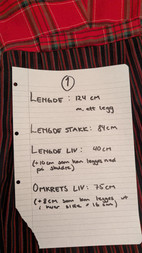 1
LENGDE: 124 cm
m. ett legg
LENGDE STAKK: 84 cm
LENGDE LIV: 40 cm
(+10 cm som kan legges ned
på skuldre)
OMKRETS LIV: 75 cm
(+8 cm som kan legges ut
i hver side = 16 cm)